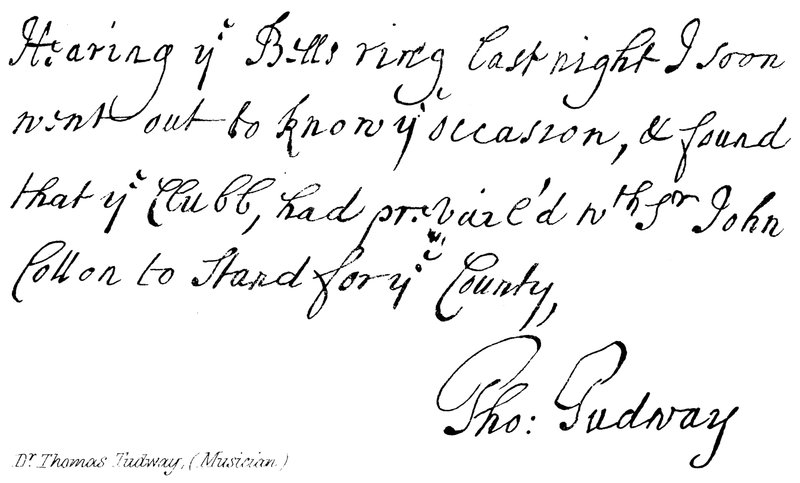 Hearing yᵉ Bells ring last night I soon
went out to know yᵉ occasion, & found
that yᵉ Clubb, had prevail'd wᵗʰ Sʳ John
Cotton to stand for yᵉ County,
Tho: Tudway
Dʳ Thomas Tudway, (Musician)